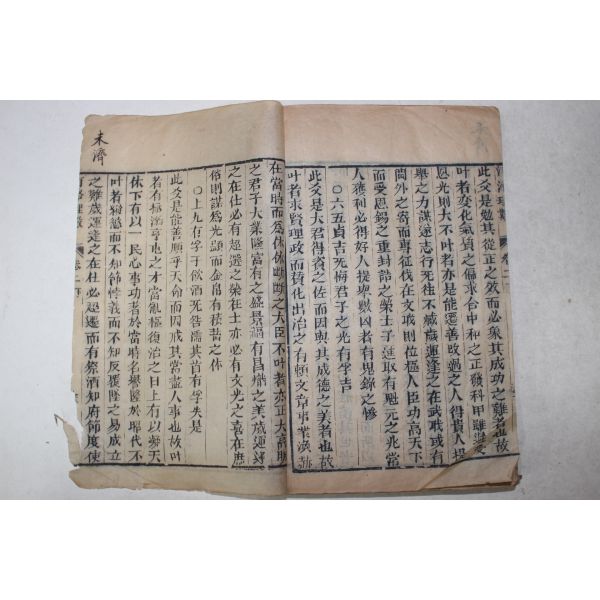 此爻是勉其從正之效而必象其成功之難者也故
叶者變化氣質之偏求合中和之正發科甲雖遲受
恩光則大不叶者亦是能遷善改過之人得貴人提
舉之力謀遂志行死往不臧歲運逢之在武職或有
閫外之寄而專征伐在文職則位極人臣功高天下
而受恩錫之重封誥之榮士子進取有魁元之兆常
人獲利必得好人提與數凶者有鬼錄之慘
〇六五貞吉无悔君子之光有孚吉
此爻是大君得資之佐而因與其成德之美者也故
叶者求賢理政而贊化出治之有賴文章事業渙赫
在當時而為休休斷斷之大臣不叶者亦正大高明
之君子大業隆富有之盛景福有昌熾之美歲運逢
之在仕必有超遷之榮在士亦必有文光之喜在庶
俗則謀為光顯而金帛有積畜之休
〇上九有孚于飲酒无咎濡其首有孚失是
此爻是能善順乎天命而因戒其當盡人事也故叶
者有極濟亨屯之才當亂極復治之日上有以奉天
休下有以一民心事功著於當時名譽隆於昭代不
叶者殢慾而不知節悖義而不知反覆墜之易成立
之難歲運逢之在仕必超遷而有祭酒知府節度使
未濟
卷二